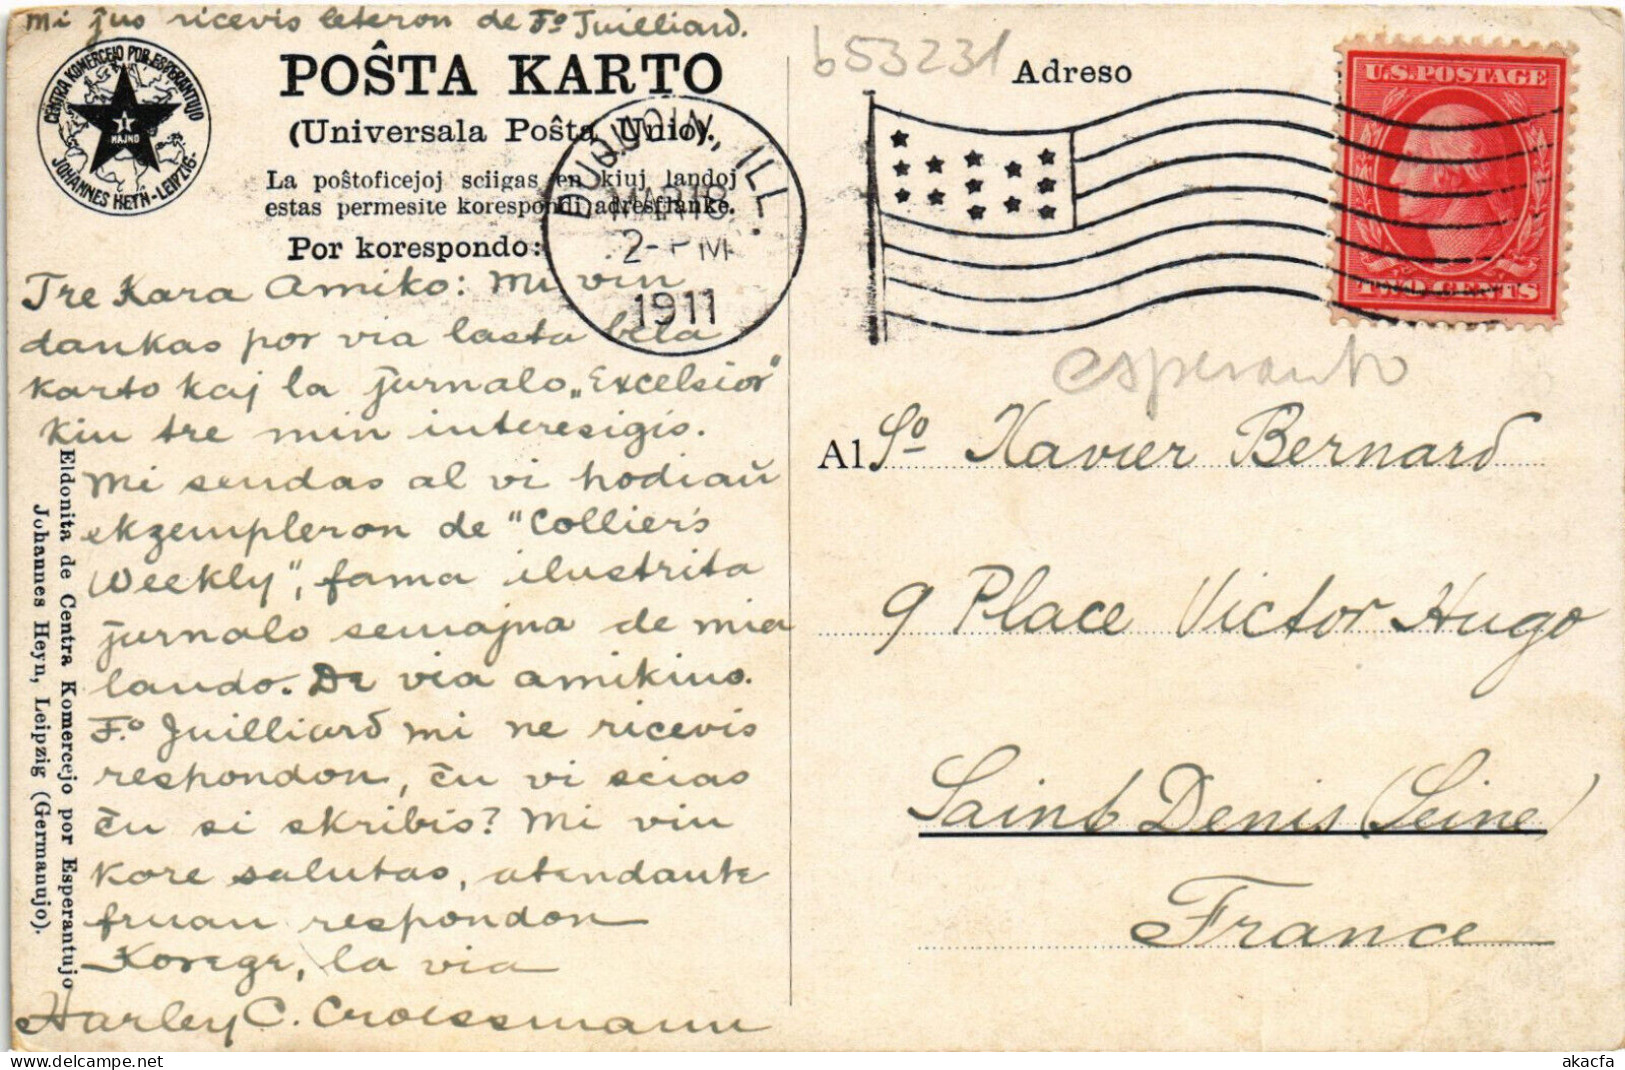 mi ĵus ricevis leteron de Fo Juilliard.
CENTRA KOMERCEJO POR ESPERANTUJO
1
MAJNO
JOHANNES HEYN-LEIPZIG-
POŜTA KARTO
(Universala Poŝta Unio).
La poŝtoficejoj sciigas en kiuj landoj
estas permesite korespondi adresflanke.
Por korespondo:
Tre Kara Amiko: Mi vin
dankas por via lasta bela
karto kaj la ĵurnalo „Excelsior"
kiu tre min interesigis.
Mi sendas al vi hodiaŭ
ekzempleron de "Collier's
Weekly", fama ilustrita
ĵurnalo semajna de mia
lando. De via amikino.
F.o Juilliard mi ne ricevis
respondon, ĉu vi scias
ĉu si skribis? Mi vin
kore salutas, atendante
fruan respondon
Korege, la via
Harley C. Croessmann
Eldonita de Centra Komercejo por Esperantujo
Johannes Heyn, Leipzig (Germanujo).
DUQUOIN, ILL.
MAR 18
2-PM
1911
b53231
Adreso
U.S. POSTAGE
TWO CENTS
esperanto
Al So Xavier Bernard
9 Place Victor Hugo
Saint Denis (Seine)
France
akacfa